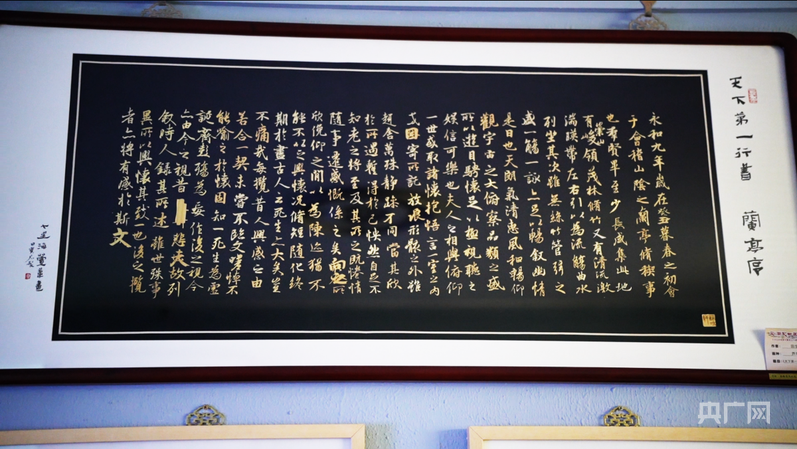 天下第一行書 蘭亭序
永和九年歲在癸丑暮春之初會
于會稽山陰之蘭亭脩稧事
也羣賢畢至少長咸集此地
有崇山峻領茂林脩竹又有清流激
湍暎帶左右引以為流觴曲水
列坐其次雖無絲竹管弦之
盛一觴一詠亦足以暢敘幽情
是日也天朗氣清惠風和暢仰
觀宇宙之大俯察品類之盛
所以遊目騁懷足以極視聽之
娛信可樂也夫人之相與俯仰
一世或取諸懷抱悟言一室之內
或因寄所託放浪形骸之外雖
趣舍萬殊靜躁不同當其欣
於所遇蹔得於己快然自足不
知老之將至及其所之既惓情
隨事遷感慨係之矣向之所
欣俛仰之閒以為陳迹猶不
能不以之興懷況脩短隨化終
期於盡古人云死生亦大矣豈
不痛哉每攬昔人興感之由
若合一契未嘗不臨文嗟悼不
能喻之於懷固知一死生為虛
誕齊彭殤為妄作後之視今
亦由今之視昔悲夫故列
敘時人錄其所述雖世殊事
異所以興懷其致一也後之攬
者亦將有感於斯文
央广网